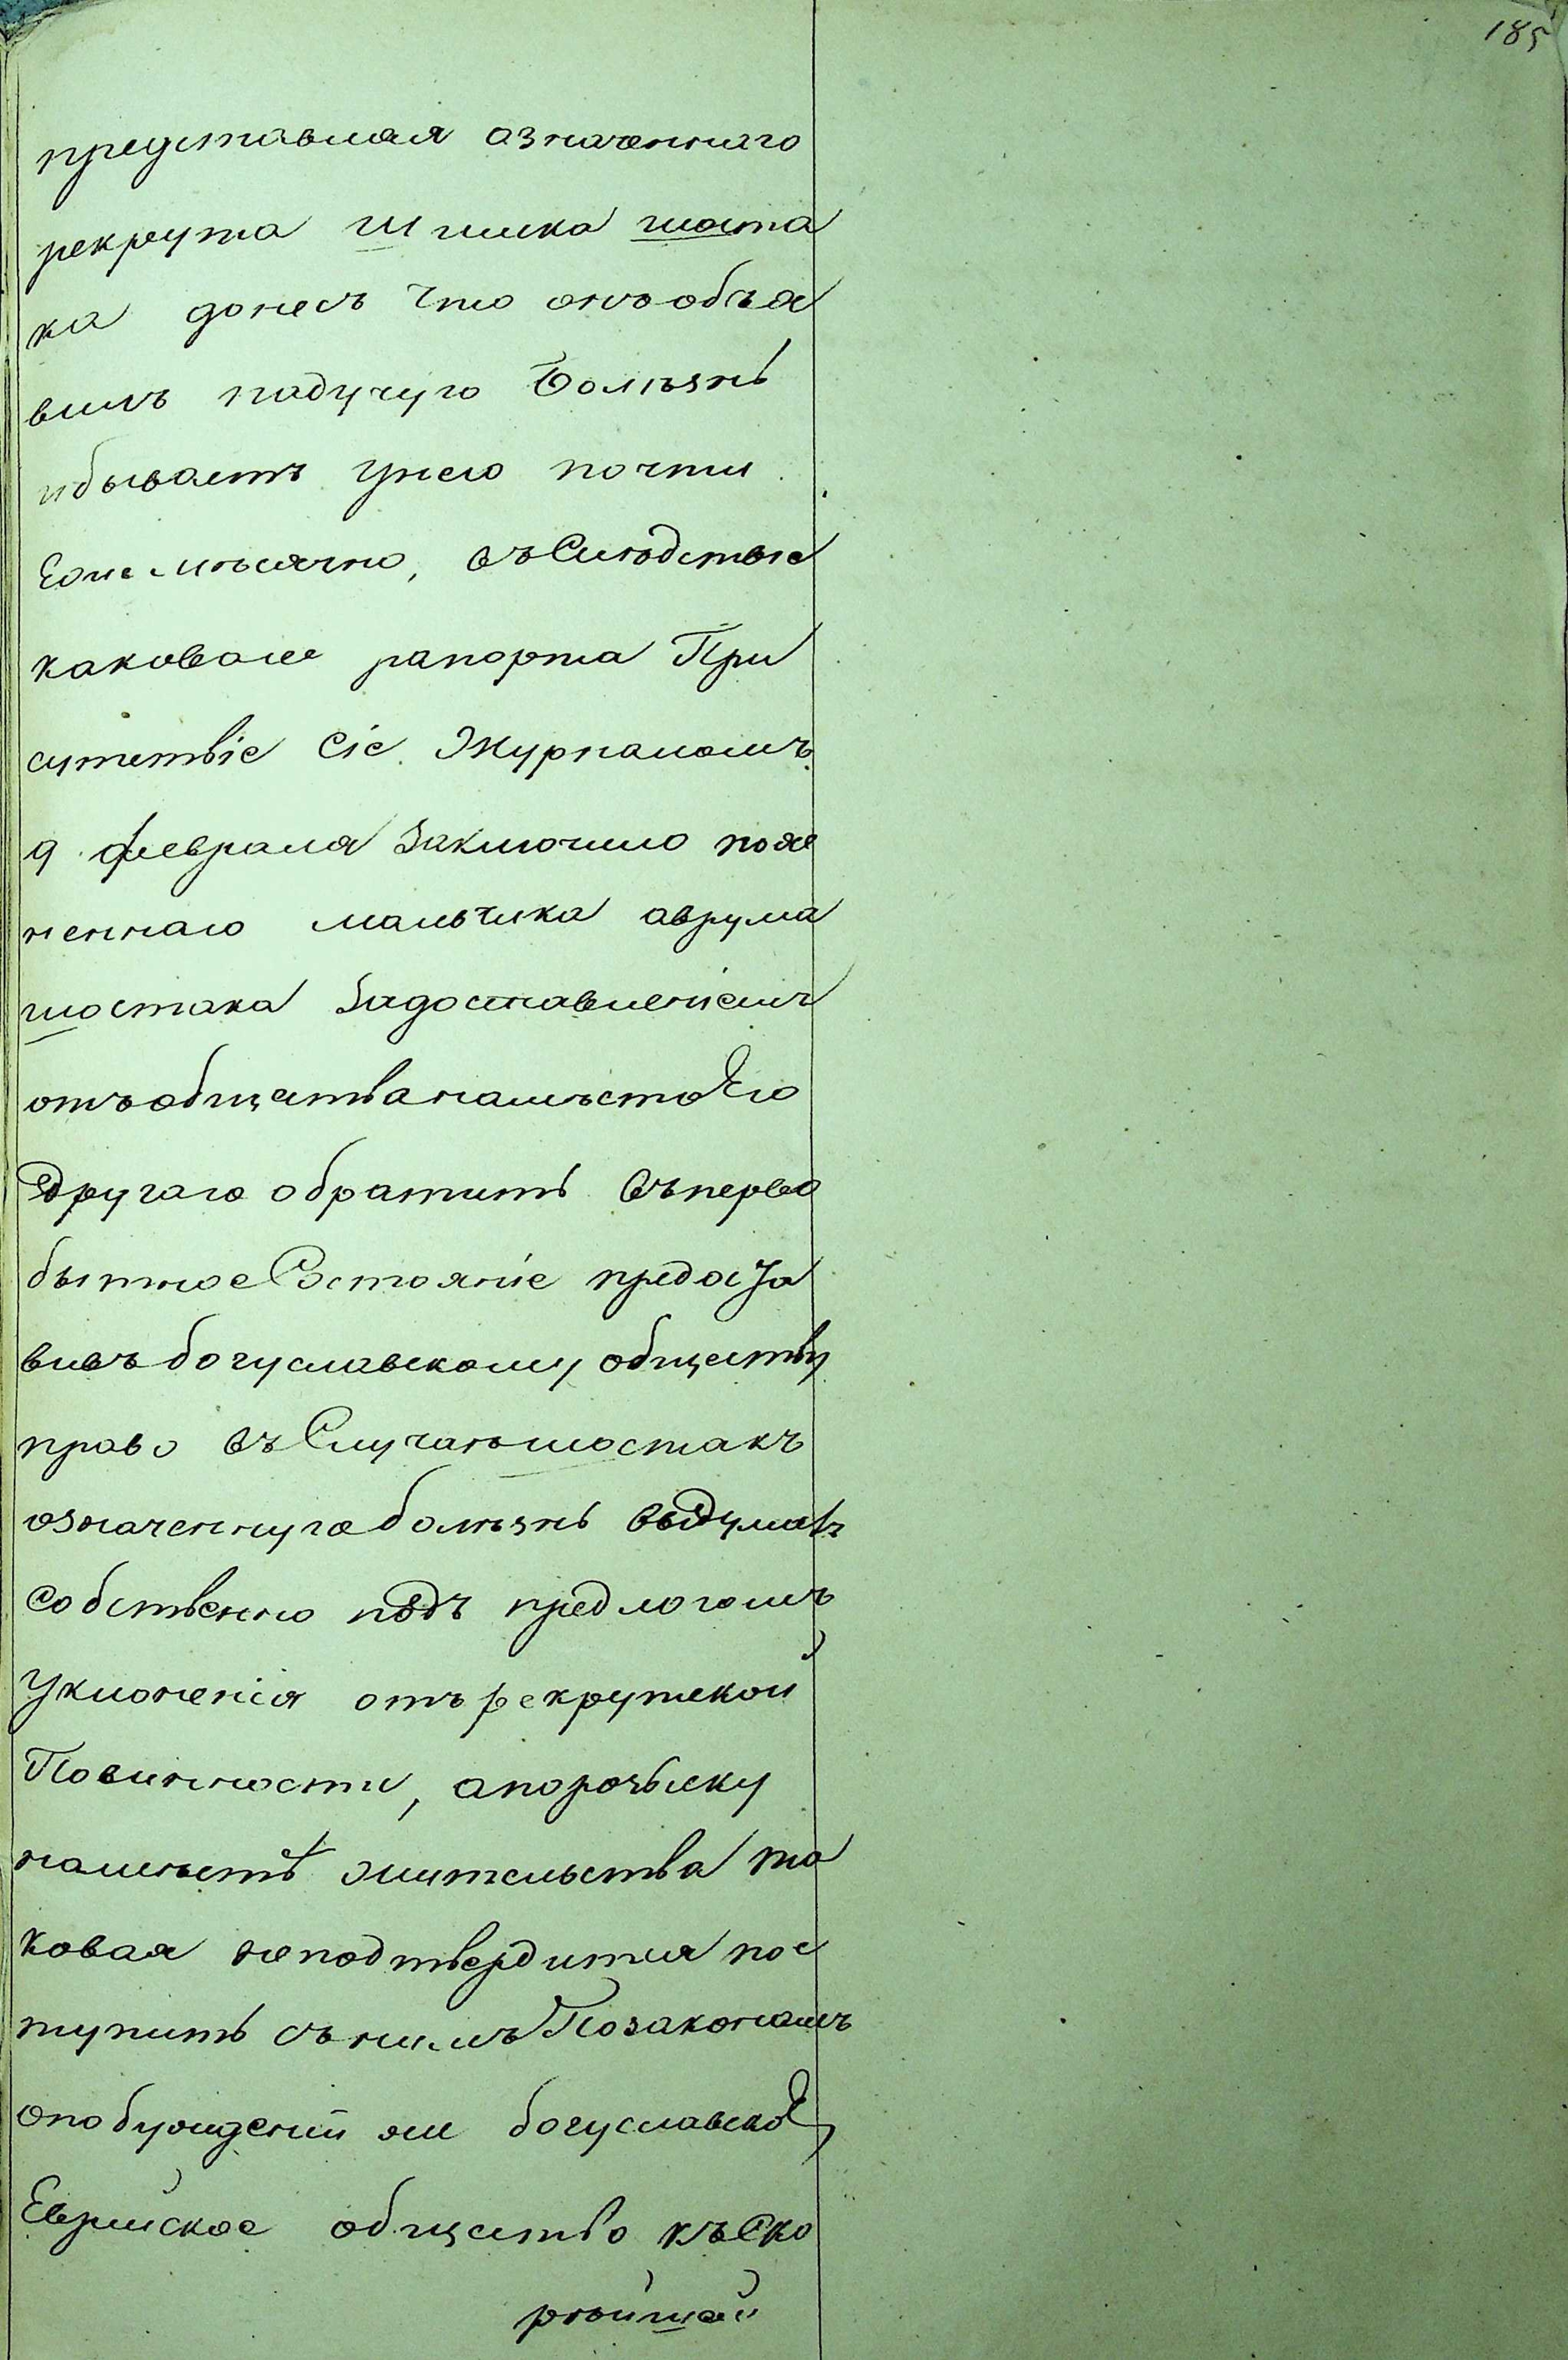 185
представляя означеннаго
рекрута Шлиока шоста
ка донесъ что онъ объя
вилъ падучую Болѣзнь
ибываетъ унего почти
Ежемѣсячно, въСлѣдствіе
каковаго рапорта При
сутствіе Сіе Журналомъ
9 февраля Заключило поя
неннаго мальчика аврума
шостака Задоставленіемъ
отъобществанамѣстоЕго
Другаго обратить въперво
бытноеСостояніе предоста
вивъбогуславскому обществу
право въСлучаѣшостакъ
означеннуюболѣзнь выдумалъ
собственно подъ предлогомъ
Уклоненія отърекрутской
Повинности, апорозыску
намѣстѣ жительства та
ковая неподтвердится пос
тупить снимъПозаконамъ
опобужденіи же богуславскоЕ
Еврейское общество къСко
рѣйшей